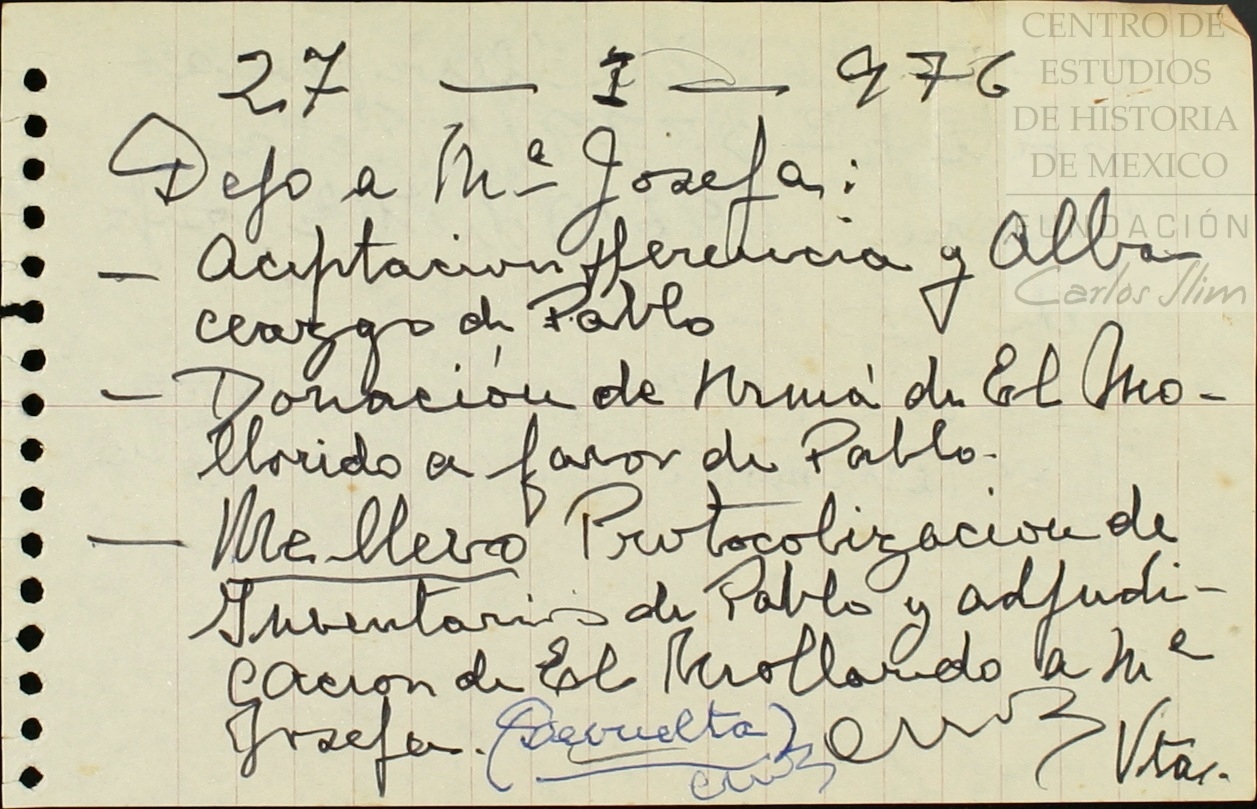 27 — I — 976
Dejo a Mª Josefa:
— Aceptacion Herencia y Alba-
ceazgo de Pablo
— Donación de Mamá de El Mo-
llorido a favor de Pablo.
— Me llevo Protocolizacion de
Inventarios de Pablo y adjudi-
cacion de El Mollorido a Mª
Josefa. (Devuelta)
Vta.
CENTRO DE
ESTUDIOS
DE HISTORIA
DE MEXICO
FUNDACIÓN
Carlos Slim